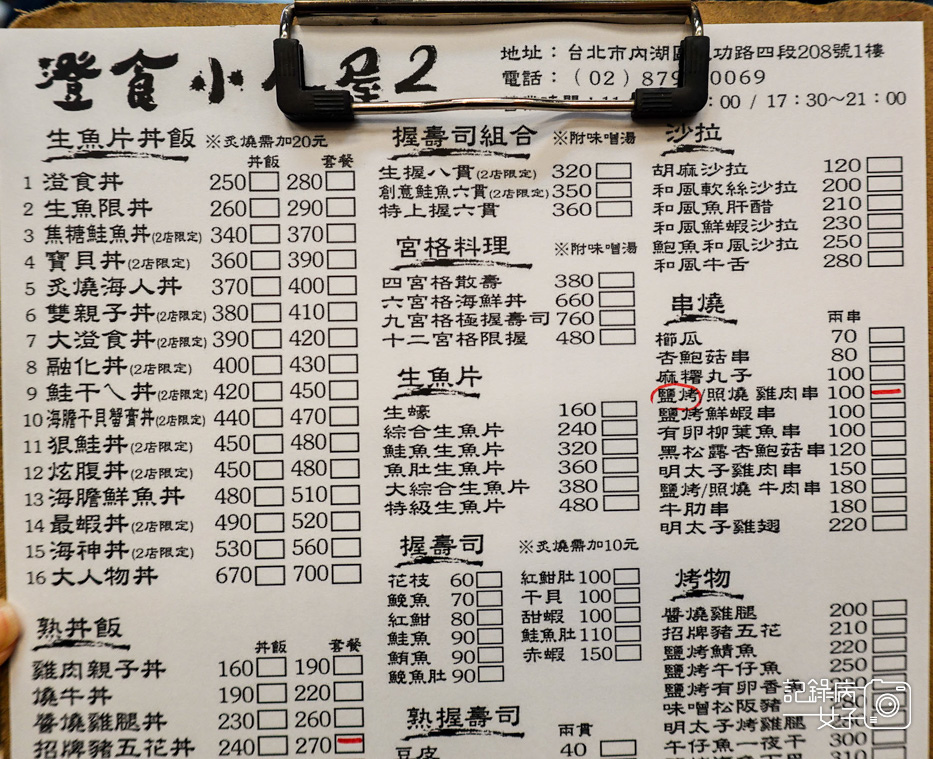 澄食小 屋2
地址：台北市內湖區 功路四段208號1樓
電話：(02)879 0069
:00 / 17:30~21:00
生魚片丼飯 ※炙燒需加20元
丼飯 套餐
1 澄食丼 250 280
2 生魚限丼 260 290
3 焦糖鮭魚丼(2店限定) 340 370
4 寶貝丼(2店限定) 360 390
5 炙燒海人丼 370 400
6 雙親子丼(2店限定) 380 410
7 大澄食丼(2店限定) 390 420
8 融化丼(2店限定) 400 430
9 鮭干ㄟ丼(2店限定) 420 450
10 海膽干貝蟹膏丼(2店限定) 440 470
11 狠鮭丼(2店限定) 450 480
12 炫腹丼(2店限定) 450 480
13 海膽鮮魚丼 480 510
14 最蝦丼(2店限定) 490 520
15 海神丼(2店限定) 530 560
16 大人物丼 670 700
熟丼飯
丼飯 套餐
雞肉親子丼 160 190
燒牛丼 190 220
醬燒雞腿丼 230 260
招牌豬五花丼 240 270
握壽司組合 ※附味噌湯
生握八貫(2店限定) 320
創意鮭魚六貫(2店限定) 350
特上握六貫 360
宮格料理 ※附味噌湯
四宮格散壽 380
六宮格海鮮丼 660
九宮格極握壽司 760
十二宮格限握 480
生魚片
生蠔 160
綜合生魚片 240
鮭魚生魚片 320
魚肚生魚片 360
大綜合生魚片 380
特級生魚片 480
握壽司 ※炙燒需加10元
花枝 60 紅魽肚 100
鮸魚 70 干貝 100
紅魽 80 甜蝦 100
鮭魚 90 鮭魚肚 110
鮪魚 90 赤蝦 150
鮸魚肚 90
熟握壽司 兩貫
豆皮 40
沙拉
胡麻沙拉 120
和風軟絲沙拉 200
和風魚肝醋 210
和風鮮蝦沙拉 230
鮑魚和風沙拉 250
和風牛舌 280
串燒 兩串
櫛瓜 70
杏鮑菇串 80
麻糬丸子 100
鹽烤/照燒 雞肉串 100
鹽烤鮮蝦串 100
有卵柳葉魚串 100
黑松露杏鮑菇串 120
明太子雞肉串 150
鹽烤/照燒 牛肉串 180
牛肋串 180
明太子雞翅 220
烤物
醬燒雞腿 200
招牌豬五花 210
鹽烤鯖魚 220
鹽烤午仔魚 250
鹽烤有卵香
味噌松阪豬
明太子烤雞腿
午仔魚一夜干 300
310
記錄病
女子